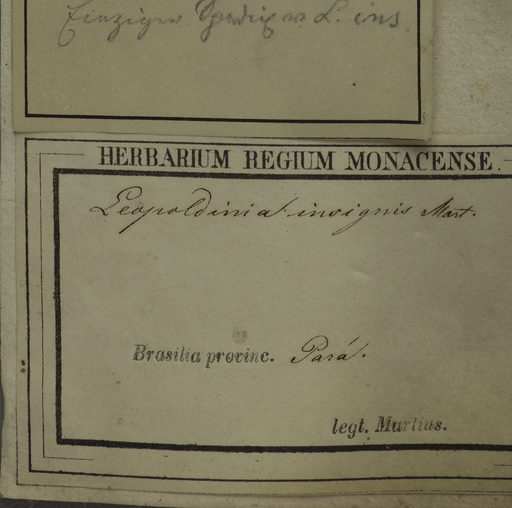 Einziger Spadix von L. ins.
HERBARIUM REGIUM MONACENSE.
Leopoldinia insignis Mart.
Brasilia provinc. Pará.
legt. Martius.